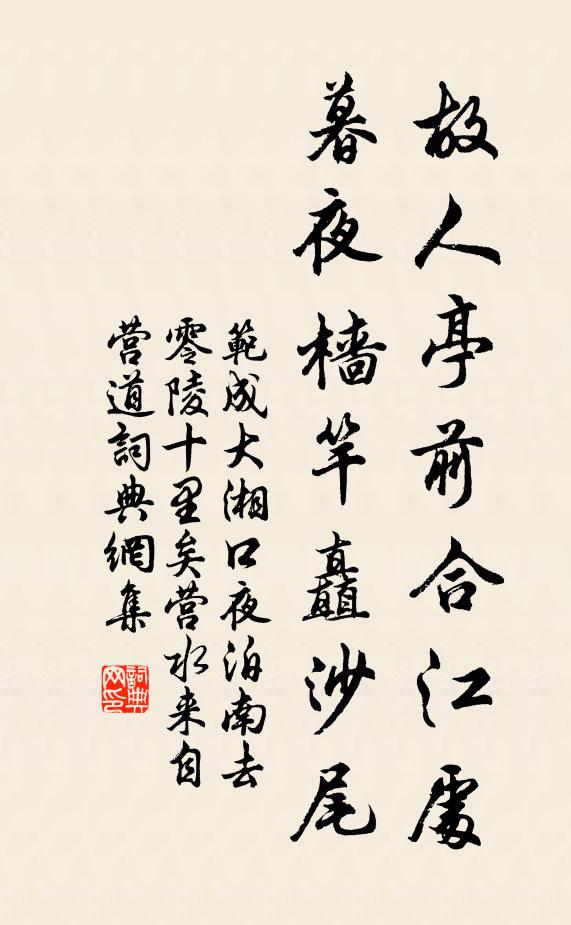 故人亭前合江處
暮夜檣竿矗沙尾
範成大湘口夜泊南去
零陵十里矣營水来自
营道詞典網集
詞典
网印